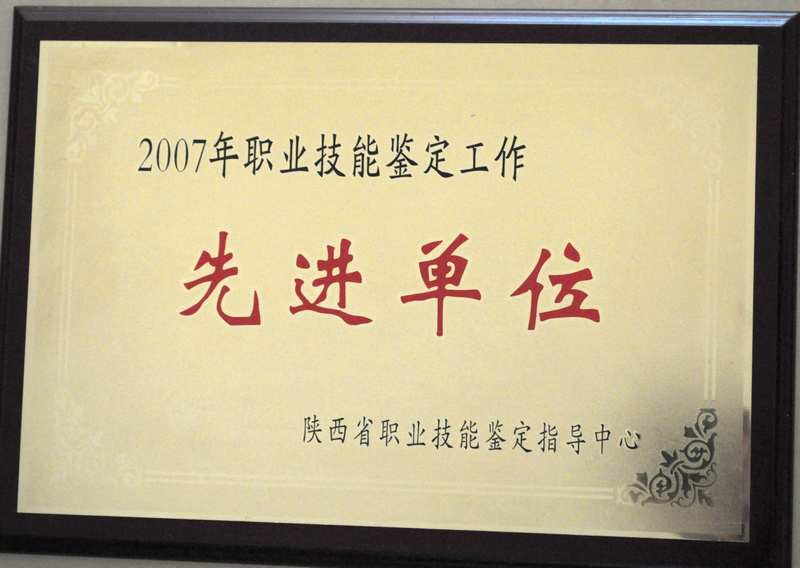 2007年职业技能鉴定工作
先进单位
陕西省职业技能鉴定指导中心